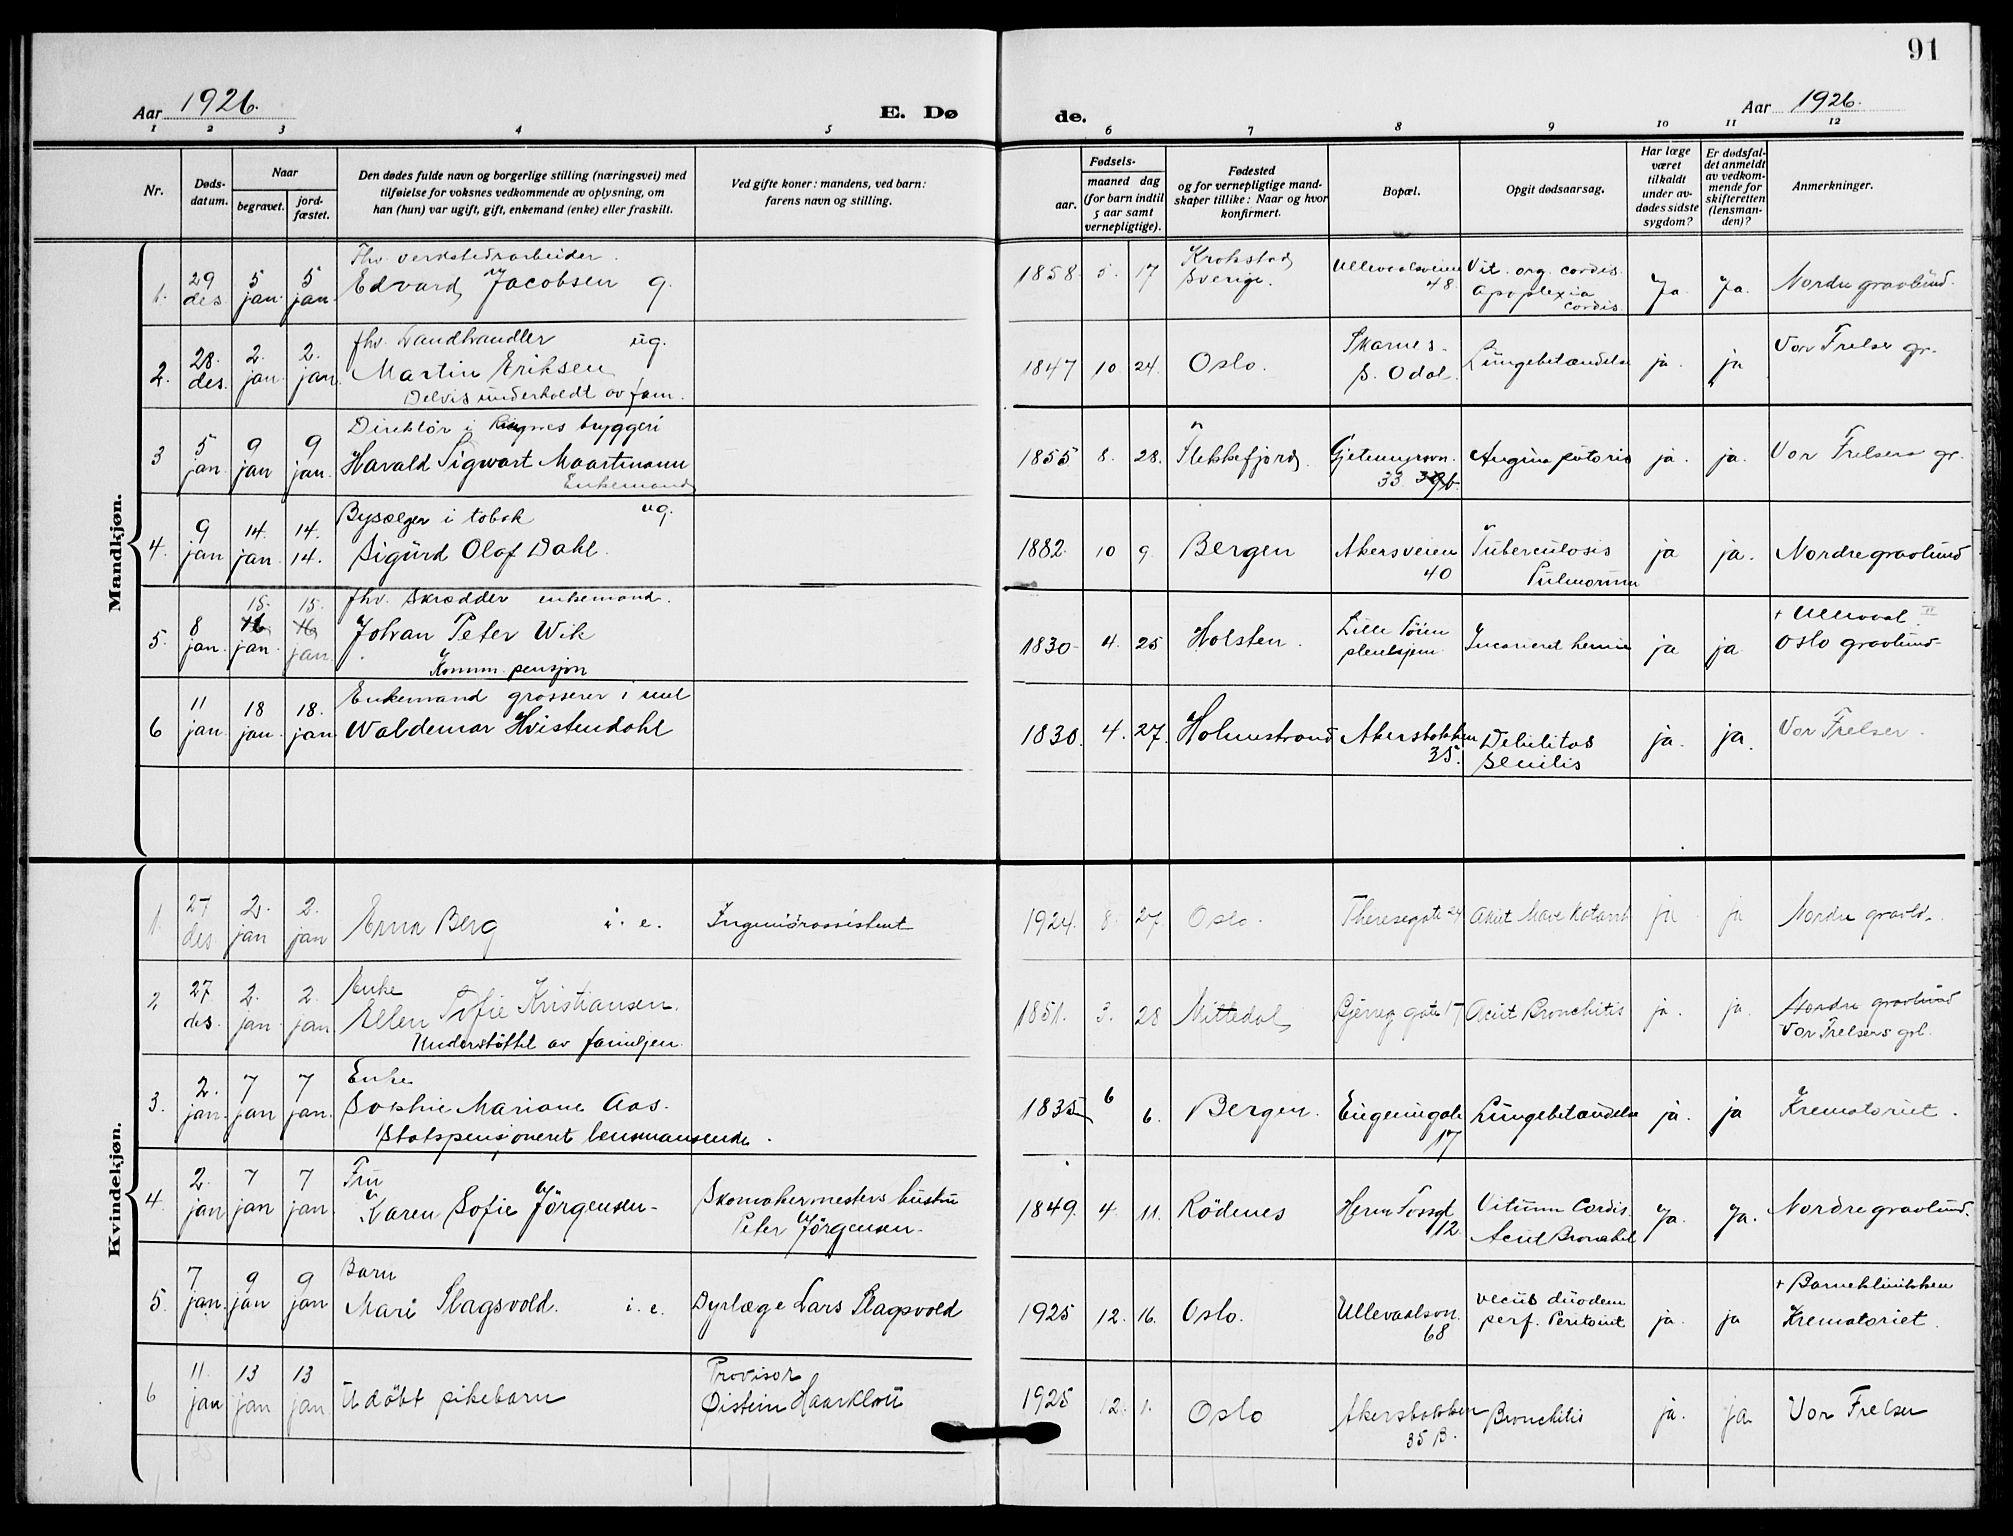 91
Aar 1926.
E. Dø
de.
Aar 1926.
1 2 3 4 5 6 7 8 9 10 11 12
Nr.
Døds-
datum.
Naar
begravet.
jord-
fæstet.
Den dødes fulde navn og borgerlige stilling (næringsvei) med
tilføielse for voksnes vedkommende av oplysning, om
han (hun) var ugift, gift, enkemand (enke) eller fraskilt.
Ved gifte koner: mandens, ved barn:
farens navn og stilling.
Fødsels-
aar.
maaned dag
(for barn indtil
5 aar samt
vernepligtige).
Fødested
og for vernepligtige mand-
skaper tillike: Naar og hvor
konfirmert.
Bopæl.
Opgit dødsaarsag.
Har læge
været
tilkaldt
under av-
dødes sidste
sygdom?
Er dødsfal-
det anmeldt
av vedkom-
mende for
skifteretten
(lensman-
den)?
Anmerkninger.
Mandkjøn.
1. 29 des 5 jan. 5 jan.
Fhv. verkstedsarbeider.
Edvard Jacobsen g.
1858. 5. 17
Krokstad
Sverige.
Ullevaalsveien
48
Vit. org. cordis.
Apoplexia
cordis.
Ja Ja. Nordre gravlund.
2. 28. des. 2. jan. 2. jan.
fhv. Landhandler ug.
Martin Eriksen
Delvis underholdt av fam.
1847 10. 24. Oslo.
Skarnes.
S. Odal.
Lungebetændelse ja. ja Vor Frelser gr.
3 5 jan. 9 jan 9 jan.
Direktør i Ringnes bryggeri
Harald Sigwart Maartmann
Enkemand
1855 8. 28. Flekkefjord.
Gjetemyrsvn.
33
Angina pectoris ja. ja. Vor Frelsers gr.
4. 9 jan 14. jan. 14. 14.
Bysælger i tobak ug.
Sigurd Olaf Dahl.
1882. 10 9. Bergen
Akersveien
40
Tuberculosis
Pulmorum
ja ja. Nordre gravlund
5. 8 jan. 15. 16 jan. 15. 16 jan.
fhv. Skrædder enkemand.
Johan Peter Wik
Komm. pensjon
1830 4. 25 Holsten.
Lille Tøien
pleiehjem.
Incarieret hernie ja ja.
+ Ullevaal II
Oslo gravlund
6 11 jan. 18 jan. 18. jan
Enkemand grosserer i mel
Waldemar Hvistendahl
1830. 4. 27. Holmestrand
Akersbakken
35.
Debilitas
Senilis
ja. ja. Vor Frelser.
Kvindekjøn.
1. 27 des 2. jan 2. jan
Erna Berg i. e. Ingeniørassistent
1924. 8. 27. Oslo. Theresegate 24 Akut Mave katarrh ja ja Nordre gravld.
2 27. des. 2. jan. 2. jan.
Enke
Ellen Sofie Kristiansen.
Understøttet av familjen.
1851. 3. 28 Nittedal Bjerreg gate 17 Acut Bronchitis ja. ja.
Nordre gravlund
Vor Frelsers grl.
3. 2. jan. 7 jan 7 jan.
Enke
Sophie Mariane Aas.
Statspensioneret lensmansenke.
1835 6 6. Bergen.
Eugeniegate
17
Lungebetændelse ja. ja Krematoriet.
4. 2. jan 7 jan 7 jan.
Fru
Karen Sofie Jørgensen
Skomakermesters hustru
Peter Jørgensen.
1849. 4. 11. Rødenes
Herm Fossgt
12
Vitium Cordis
Acut Bronchit
Ja. Ja. Nordre gravlund.
5. 7 jan. 9 jan 9 jan
Barn
Mari Slagsvold. i. e. Dyrlæge Lars Slagsvold
1925 12. 16. Oslo.
Ullevaalsvn.
68
ulcus duodeni
perf. Peritonit
ja. ja
+ Barneklinikken
Krematoriet.
6 11. jan 13 jan 13 jan
Udøbt pikebarn
Provisor
Øistein Haarklou
1925 12. 1. Oslo
Akersbakken
35 B.
Bronchitis ja. ja. Vor Frelser